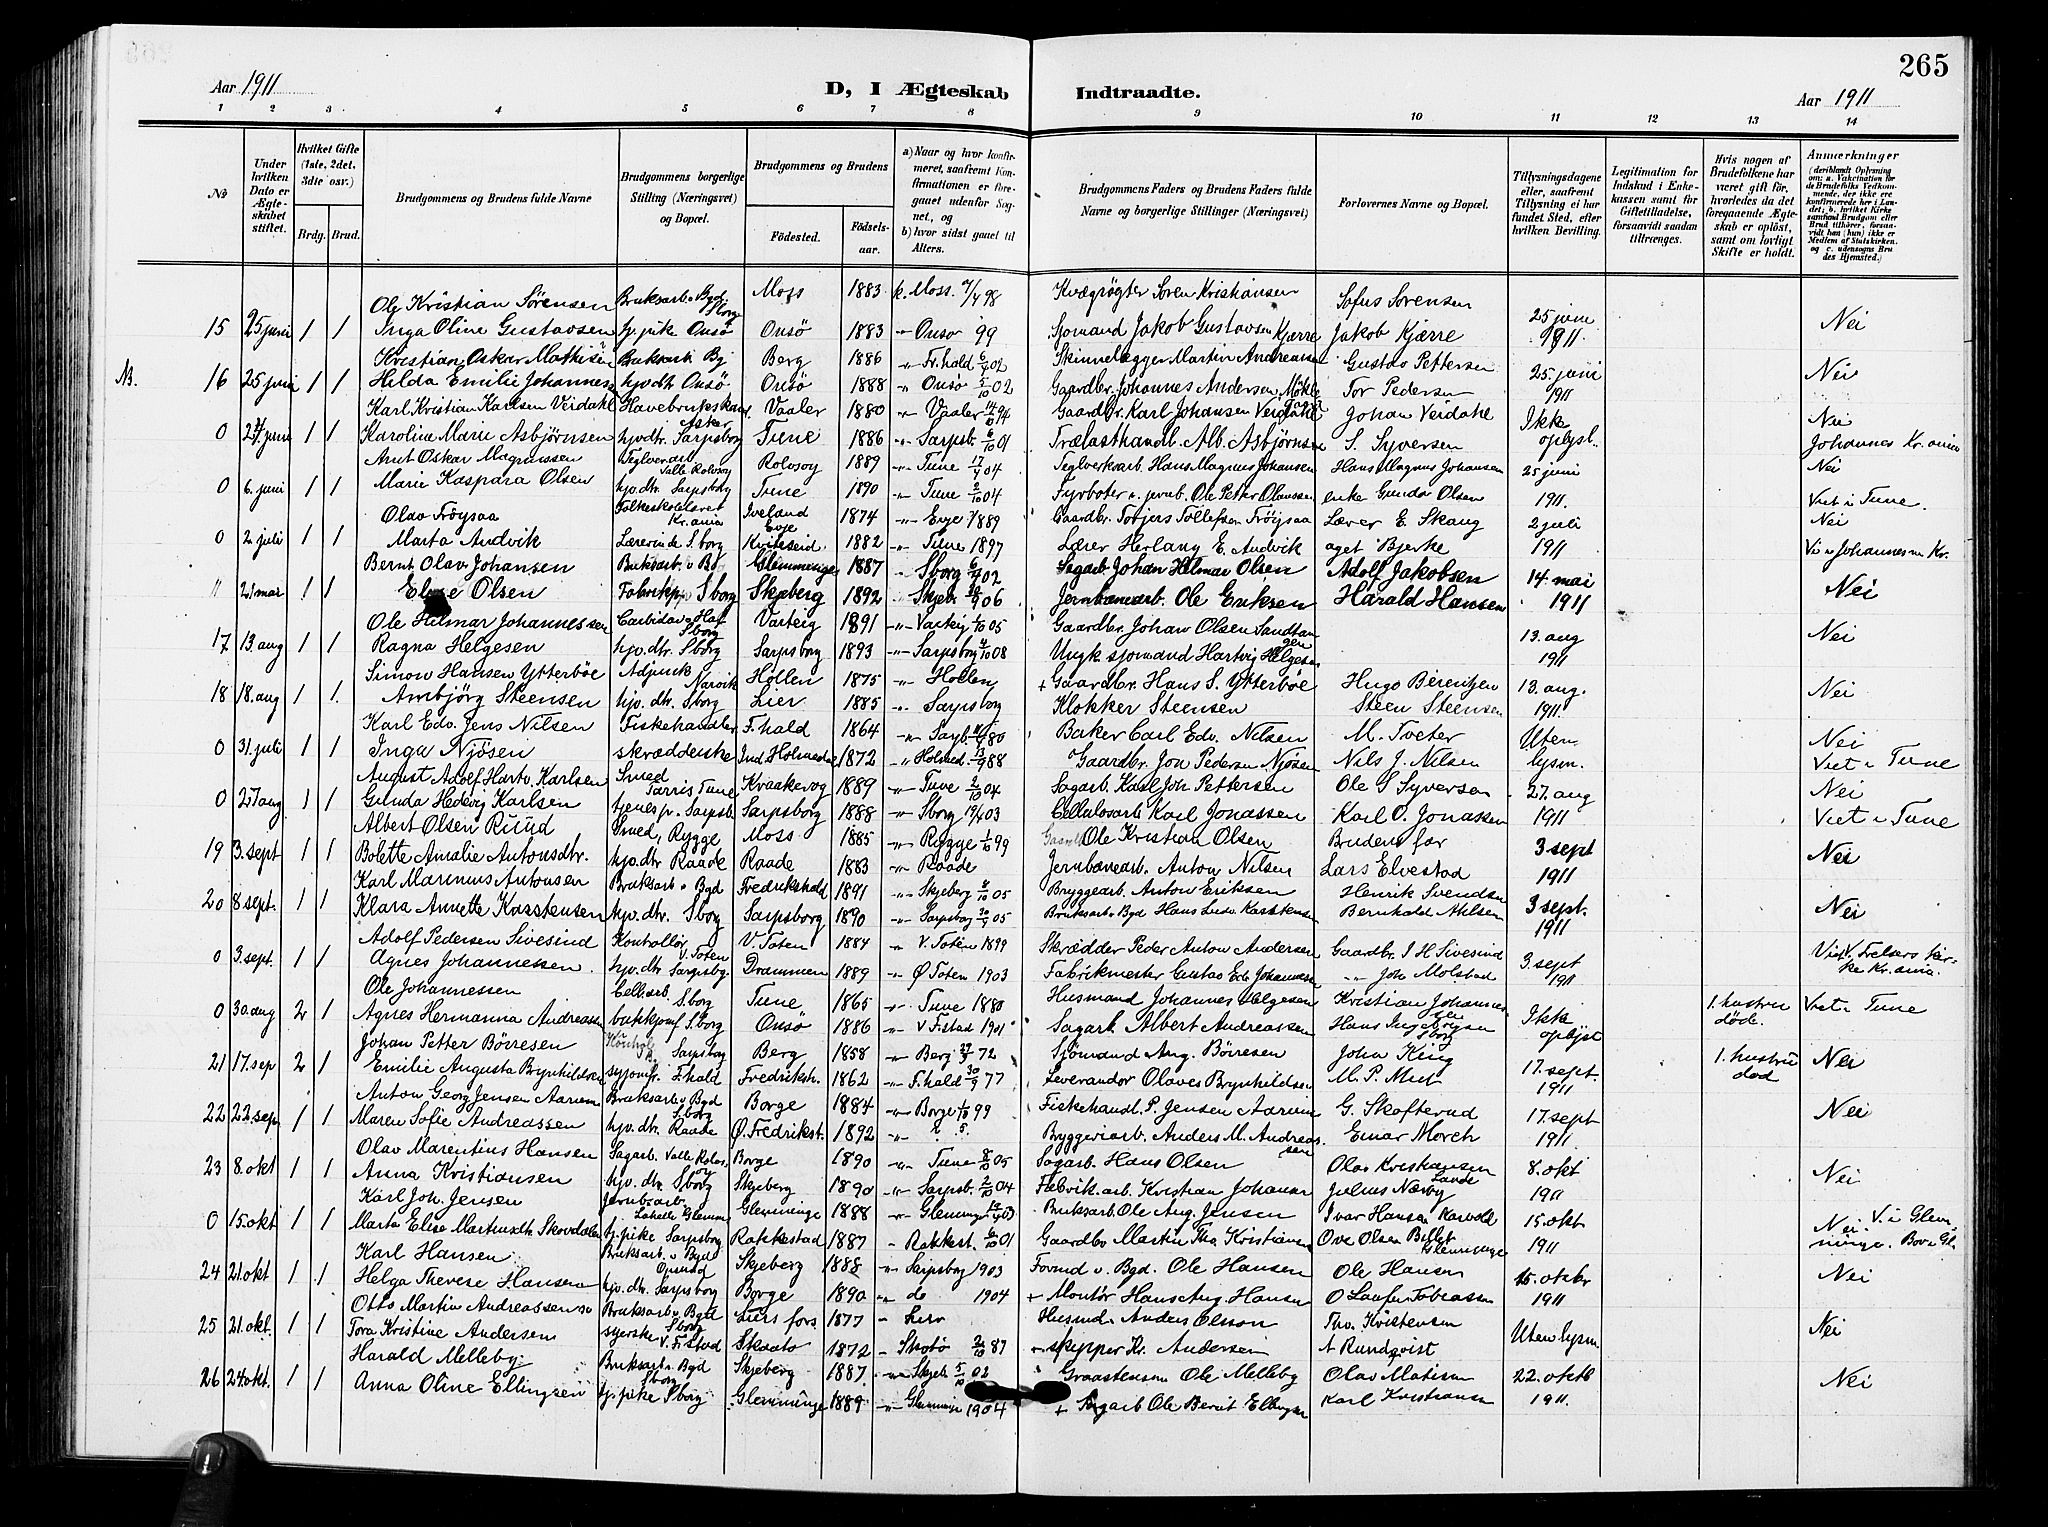 265
Aar 1911 D, I Ægteskab Indtraadte. Aar 1911
1 2 3 4 5 6 7 8 9 10 11 12 13 14
№
Under hvilken Dato er Ægteskabet stiftet.
Hvilket Gifte (1ste, 2det, 3die osv.)
Brdg. Brud.
Brudgommens og Brudens fulde Navne
Brudgommens borgerlige Stilling (Næringsvei) og Bopæl.
Brudgommens og Brudens
Fødested. Fødselsaar.
a) Naar og hvor konfirmeret, saafremt Konfirmationen er foregaaet udenfor Sognet, og
b) hvor sidst gaaet til Alters.
Brudgommens Faders og Brudens Faders fulde Navne og borgerlige Stillinger (Næringsvei)
Forlovernes Navne og Bopæl.
Tillysningsdagene eller, saafremt Tillysning ei har fundet Sted, efter hvilken Bevilling.
Legitimation for Indskud i Enkekassen samt for Giftetilladelse, forsaavidt saadan tiltrænges.
Hvis nogen af Brudefolkene har været gift før, hvorledes da det foregaaende Ægteskab er opløst, samt om lovligt Skifte er holdt.
Anmærkninger (deriblandt Oplysning om: a. Vakcination for de Brudefolks Vedkommende, der ikke ere konfirmerede her i Landet; b. hvilket Kirkesamfund Brudgom eller Brud tilhører, forsaavidt han (hun) ikke er Medlem af Statskirken. og c. udensogns Brudes Hjemsted.)
Ole Kristian Sörensen Bruksarb. v Bgd. Sborg Moss 1883 k. Moss 98 Kvægrögter Sören Kristiansen Sofus Sorensen 25 juni
15 25 juni 1 1 Inga Oline Gustavsen tj. pike Onsö Onsö 1883 " Onsö 99 Sjomand Jakob Gustavsen Kjærre Jakob Kjærre 1911. Nei
Kristian Oskar Mathisen Bruksarb By Berg 1886 " Fr.hald 02 Skinnelægger Martin Andreassen Gustav Pettersen 25. juni
16 25 juni 1 1 Hilda Emilie Johannesen hjv dtr Onsö Onsö 1888 " Onsö 02 Gaardbr. Johannes Andersen, Tor Pedersen 1911 Nei
Karl Kristian Karlsen Verdahl Havebrukskand. Asker Vaaler 1880 " Vaaler 94 Gaardbr. Karl Johansen Verdahl Johan Verdahl Ikke Nei
0 24 juni 1 1 Karoline Marie Asbjörnsen hjv dtr. Sarpsborg Tune 1886 " Sarpsb. 01 Trælasthandl. Alb. Asbjörnsen S. Syversen oplyst. Johannes Kr.ania
Arnt Oskar Magnussen Teglverarb Valle Rolvsoy Rolvsoy 1889 " Tune 04 Teglverksarb. Hans Magnus Johansen Hans Magnus Johansen 25 juni Nei
0 6. juni 1 1 Marie Kaspara Olsen hjv. dtr. Sarpsborg Tune 1890 " Tune 04 Fyrböter v. jernb. Ole Petter Olaussen enke Gunda Olsen 1911. Viet i Tune.
Olav Tröysaa Folkeskolelærer Kr.ania Iveland Evje 1874 " Evje 1889 Gaardbr. Torbjörn Tollefsen Tröysaa Lærer E. Skaug 2 juli Nei
0 2 juli 1 1 Marta Andvik Lærerinde S.borg Kviteseid 1882 " Tune 1897 Lærer Herlaug E. Andvik aget Bjerke 1911 Vi i Johannes Kr.
Bernt Olav Johansen Bruksarb. v Bo Glemminge 1887 " Sborg 02 Sagarb. Johan Helmar Olsen Adolf Jakobsen 14. mai
" 21 mar 1 1 Elise Olsen Fabrikpp S borg Skjeberg 1892 " Skjeb. 06 Jernbanearb. Ole Eriksen Harald Hansen 1911 Nei
Ole Helmar Johannessen Carbidarb Haf Sborg Varteig 1891 " Varteig 05 Gaardbr. Johan Olsen Sandtangen 13. aug
17 13. aug 1 1 Ragna Helgesen hjv. dtr. Sborg Sarpsborg 1893 " Sarpsborg 08 Ungk. sjomand Hartvig Helgesen 1911 Nei
Simon Hansen Ytterböe Adjunck Narvik Hollen 1875 " Hollen + Gaardbr. Hans S. Ytterböe Hugo Berentzen 13. aug.
18 18. aug 1 1. Ambjörg Steensen hjv. dtr. Sborg Lier 1885 " Sarpsborg Klokker Steensen Steen Steensen 1911. Nei
Karl Edv. Jens Nilsen Fiskehandler F.hald 1864 " Sarpb. 80 Baker Carl Edv. Nilsen M. Tveter Uten Nei
0 31. juli 1 1 Inga Njösen skrædderske Ind Holmedal 1872 " Holmed. 88 Gaardbr. Jon Pedersen Njösen Nils J. Nilsen lysn. Viet i Tune
August Adolf Hartv. Karlsen Smed Tune Kraakerög 1889 " Tune 04 Sagarb. Karl Joh Pettersen Ole S Syversen 27. aug Nei
0 27 aug 1 1 Gunda Hedevig Karlsen tjenesp. Sarpsb. Sarpsborg 1888 " Sborg 03 Cellulosearb Karl Jonassen Karl O. Jonassen 1911 Viet i Tune
Albert Olsen Ruud Smed, Rygge Moss 1885 " Rygge 99 Ole Kristian Olsen Brudens far 3 sept
19 3. sept 1 1 Bolette Amalie Antonsdtr. hjv. dtr Raade Raade 1883 " Raade Jernbanearb. Anton Nilsen Lars Elvestad 1911 Nei
Karl Marinius Antonsen Bruksarb v Bgd Fredrikshald 1891 " Skjeberg 05 Bryggearb. Anton Eriksen Henrik Svendsen 3 sept.
20 8 sept. 1 1 Klara Annette Karstensen hjv. dtr. Sborg Sarpsborg 1890 " Sarpsborg 05 Bruksarb v Bgd Hans Ludv. Karstensen Bernhold Nilsen 1911 Nei
Adolf Pedersen Sivesind Kontrollör V. Toten V. Toten 1884 " V. Toten 1899 Skrædder Peder Anton Andersen Gaardbr. I H Sivesind 3. sept Viet i Frelsers kir-
0 3. sept. 1 1 Agnes Johannessen hjv. dtr Sarpsbg. Drammen 1889 " Ø. Toten 1903 Fabrikmester Gustav Edv Johannessen " Joh Molstad 1911 ke Kr.ania.
Ole Johannessen Cell.arb. S.borg Tune 1865 " Tune 1880 Husmand Johannes Helgesen Kristian Johannessen Ikke 1. hustru Viet i Tune
0 30. aug 2 1 Agnes Hermanna Andreassen butikjomf. S.borg Onsö 1886 " V F.stad 1901 Sagarb. Albert Andreassen Hans Ingebrigtsen Sborg oplyst död.
Johan Petter Börresen Sarpsborg Berg 1858 " Berg 72 Sjömand Aug. Börresen John King 17. sept. 1. hustru Nei
21 17. sep 2 1 Emilie Augusta Brynhildsen syjomfr. F.hald Fredriksh. 1862 " F.hald 77 Leverandör Olaves Brynhildsen M. P. 1911 död
Anton Georg Jensen Aarum Bruksarb v Bgd Sborg Borge 1884 " Borge 99 Fiskehandl. P. Jensen Aarum G. Skofterud 17. sept
22 22 sep. 1 1 Maren Sofie Andreassen hjv. dtr. Raade Ø. Fredrikst. 1892 " ? Bryggeriarb. Anders M. Andreassen Einar Morch 1911 Nei
Olav Marentius Hansen Sagarb. Valle Rolvsoy Borge 1890 " Tune 05 Sagarb. Hans Olsen Olav Kristiansen 8. okt
23 8. okt 1 1 Anna Kristiansen hjv. dtr Sborg Skjeberg 1890 " Sarpsb. 04 Fabrik. arb. Kristian Johansen Julius Nærby Lande 1911 Nei
Karl Joh. Jensen Jernbearb. Glemm. Glemminge 1888 " Glemminge 03 Bruksarb. Ole Aug. Jensen Ivar Hansen 15. okt V. i Glem-
0 15. okt 1 1 Marta Elise tj. pike Sarpsborg Rakkestad 1887 " Rakkest. 01 Gaardbr. Martin Kristiansen Ove Olsen Glemminge 1911 Nei minge. Bor i Gl.
Karl Hansen Bruksarb v Bgd Skjeberg 1888 " Sarpsborg 1903 Formd v. Bgd. Ole Hansen Ole Hansen 15. oktbr
24 21. okt 1 1 Helga Therese Hansen hjv. dtr. Sarpsborg Borge 1890 " do 1904 + Montör Hans Aug. Hansen O Tobiassen 1911 Nei
Otto Martin Andreassen Bruksarb v Bgd Sborg 1877 " Husmd. Anders Olsson Tho. Kristensen
25 21. okt. 1 1 Tora Kristine Andersen syerske V. F.stad Skaato 1872 " Skotö 87 skipper Kr. Andersen A Rundqvist Uten lysn. Nei
Harald Melleby Bruksarb v. Bgd Sborg Skjeberg 1887. " Skjeb. 02 Graastensm Ole Melleby Olav Matisen 22. oktb
26 24 okt. 1 1 Anna Oline Ellingsen tj. pike Sborg Glemminge 1889 " Glemminge 1904 + Sagarb Ole Bernt Ellingsen Karl Kristiansen 1911. Nei